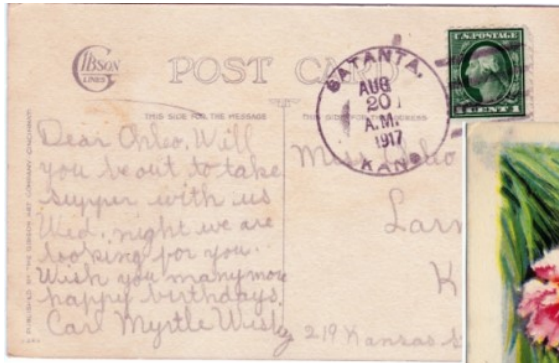 GIBSON
LINES
POST CARD
THIS SIDE FOR THE MESSAGE
THIS SIDE FOR THE ADDRESS
SATANTA,
AUG
20
A.M.
1917
KANS
U.S. POSTAGE
1 CENT 1
Dear Ohleo, Will
you be out to take
supper with us
Wed. night we are
looking for you.
Wish you many more
happy birthdays.
Carl Myrtle Wisby
Miss
Larn
K
219 Kansas
PUBLISHED BY THE GIBSON ART COMPANY, CINCINNATI